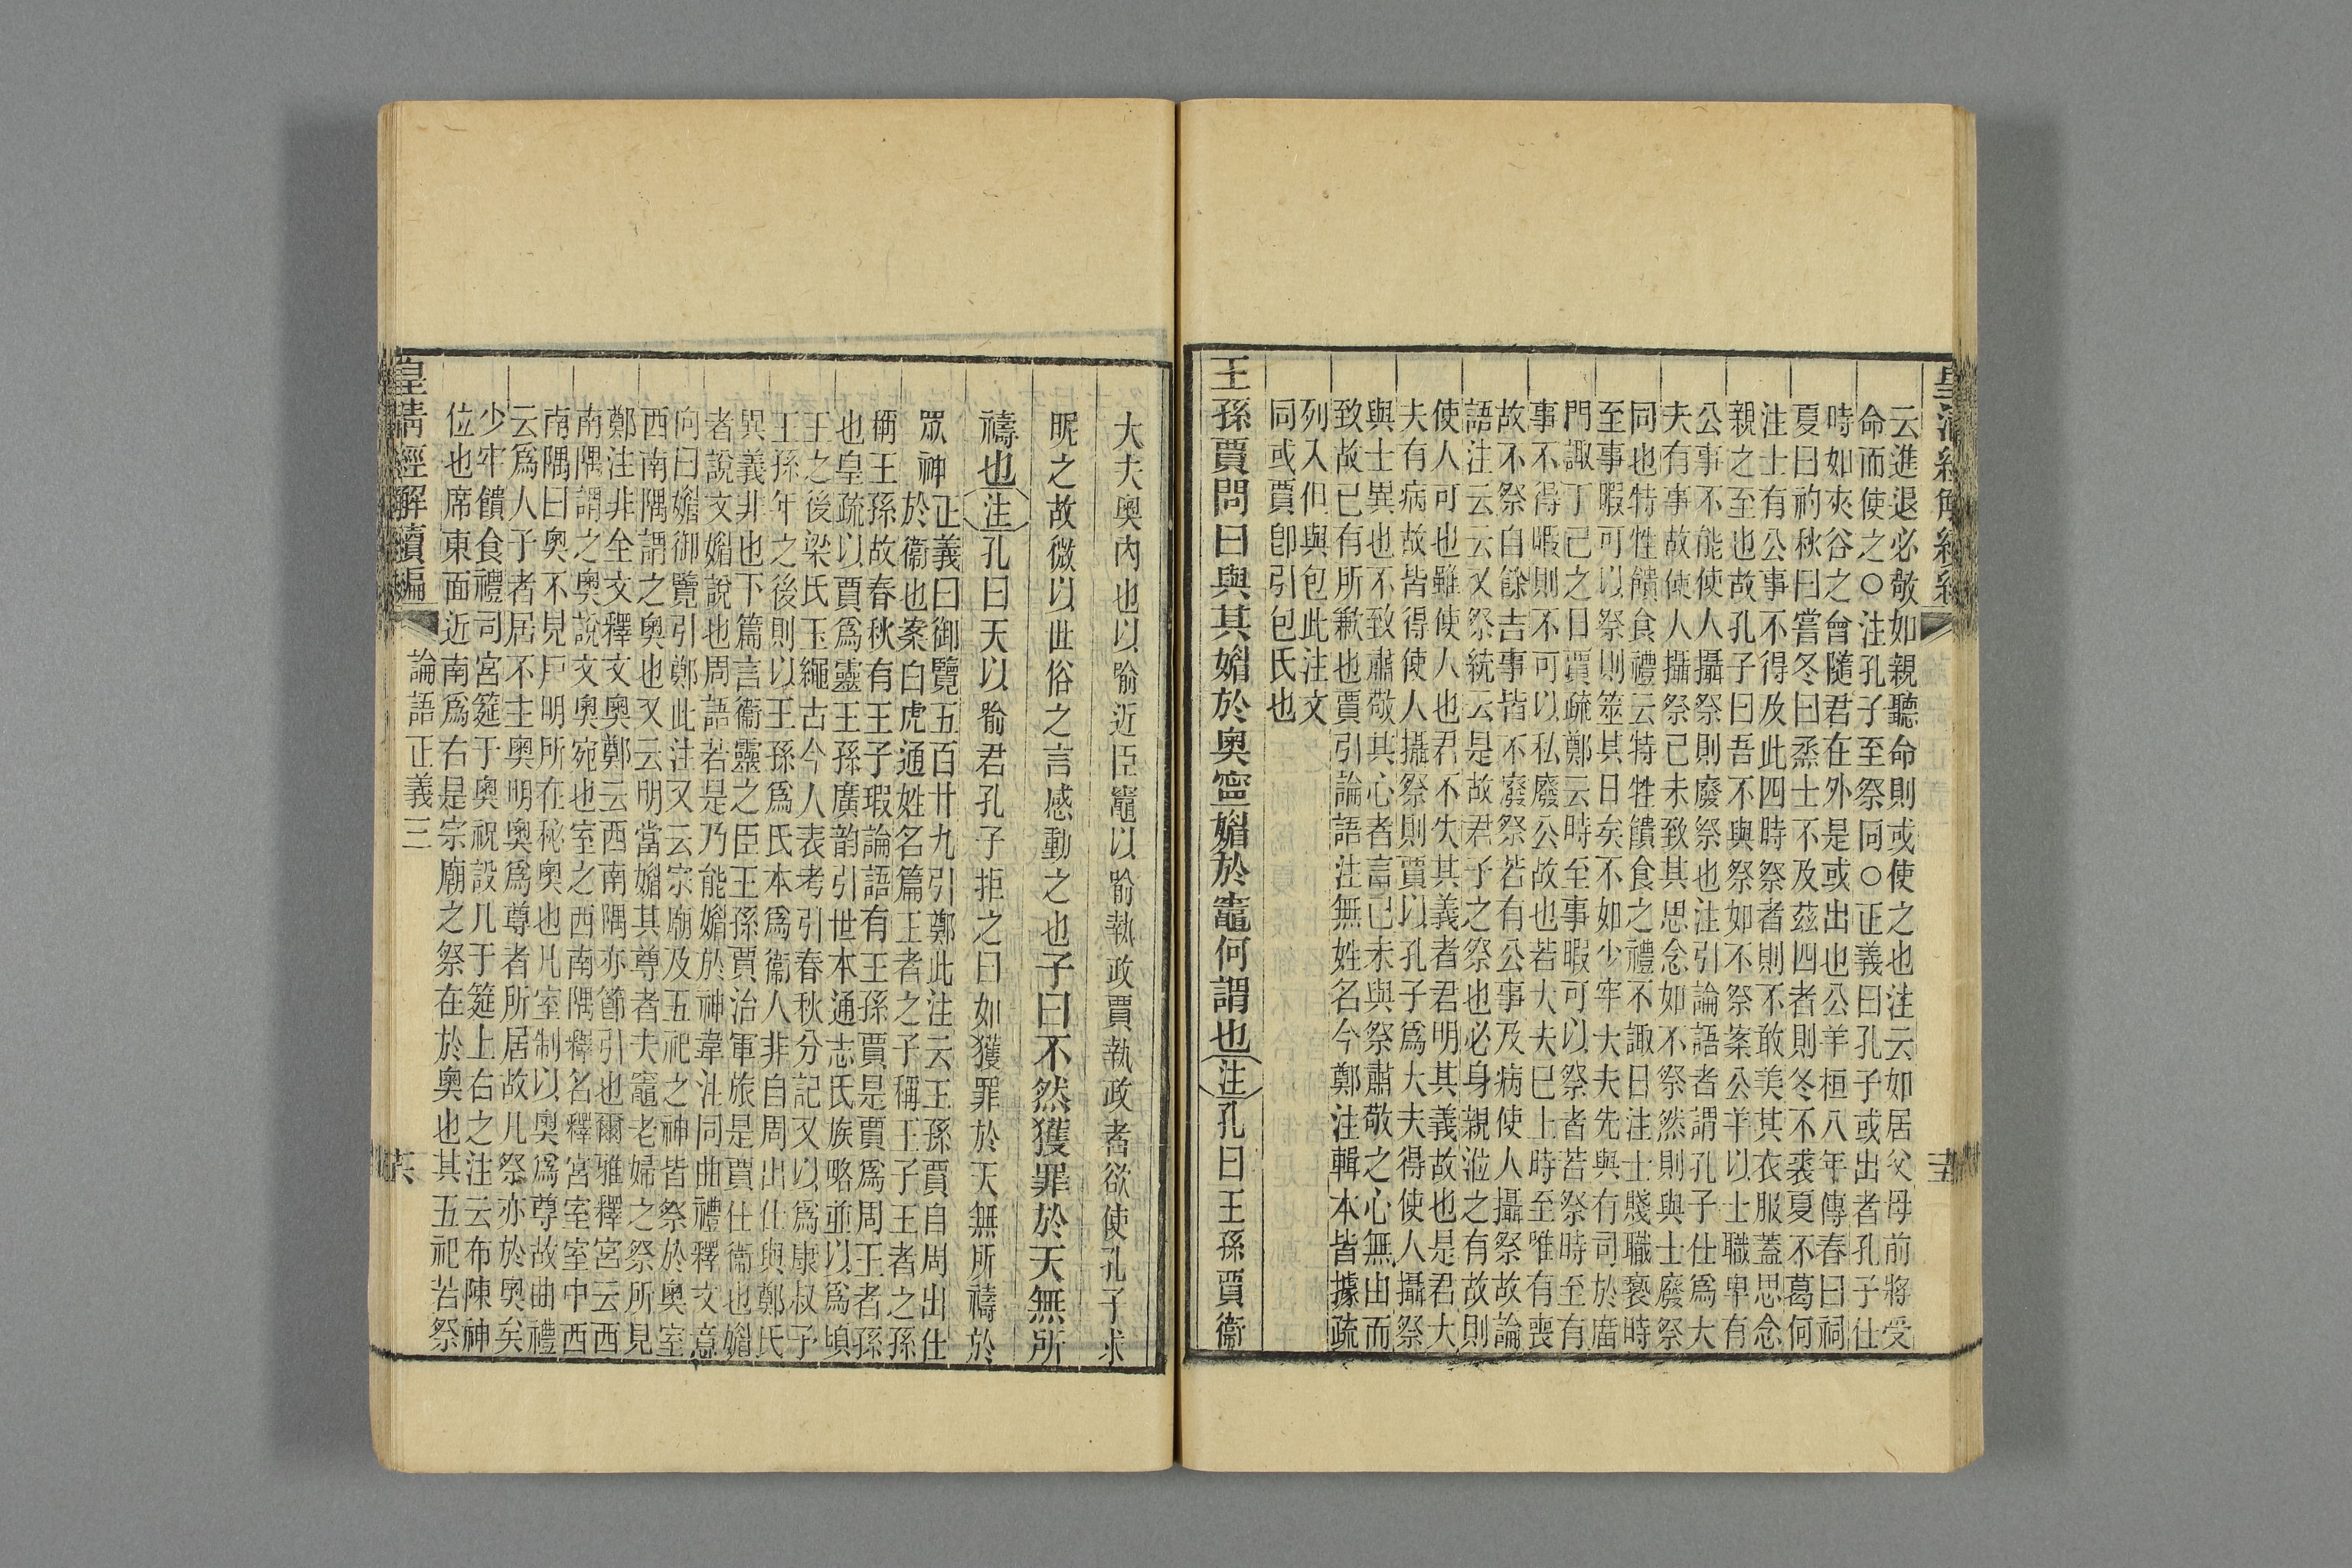 云進退必敬如親聽命則或使之也注云如居父母前將受
命而使之○注孔子至祭同○正義曰孔子或出者孔子仕
時如夾谷之會隨君在外是或出也公羊桓八年傳春曰祠
夏曰礿秋曰嘗冬曰烝士不及茲四者則冬不裘夏不葛何
注士有公事不得及此四時祭者則不敢美其衣服蓋思念
親之至也故孔子曰吾不與祭如不祭案公羊以士職卑有
公事不能使人攝祭則廢祭也注引論語者謂孔子仕爲大
夫有事故使人攝祭己未致其思念如不祭然則與士廢祭
同也特牲饋食禮云特牲饋食之禮不諏日注士賤職褻時
至事暇可以祭則筮其日矣不如少牢大夫先與有司於廟
門諏丁己之日賈疏鄭云時至事暇可以祭者若祭時至有
事不得暇則不可以私廢公故也若大夫已上時至唯有喪
故不祭自餘吉事皆不廢祭若有公事及病使人攝祭故論
語注云云又祭統云是故君子之祭也必身親涖之有故則
使人可也雖使人也君不失其義者君明其義故也是君大
夫有病故皆得使人攝祭則賈以孔子爲大夫得使人攝祭
與士異也不致肅敬其心者言己未與祭肅敬之心無由而
致故已有所歉也賈引論語注無姓名今鄭注輯本皆據疏
列入但與包此注文
同或賈卽引包氏也
王孫賈問曰與其媚於奧寧媚於竈何謂也注孔曰王孫賈衞
大夫奧內也以喻近臣竈以喻執政賈執政者欲使孔子求
昵之故微以世俗之言感動之也子曰不然獲罪於天無所
禱也注孔曰天以喻君孔子拒之曰如獲罪於天無所禱於
眾神
正義曰御覽五百廿九引鄭此注云王孫賈自周出仕
於衞也案白虎通姓名篇王者之子稱王子王者之孫
稱王孫故春秋有王子瑕論語有王孫賈是賈爲周王者孫
也皇疏以賈爲靈王孫廣韵引世本通志氏族略並以爲頃
王之後梁氏玉繩古今人表考引春秋分記又以爲康叔子
王孫年之後則以王孫爲氏本爲衞人非自周出仕與鄭氏
異義非也下篇言衞靈之臣王孫賈治軍旅是賈仕衞也媚
者說文媚說也周語若是乃能媚於神韋注同曲禮釋文意
向曰媚御覽引鄭此注又云宗廟及五祀之神皆祭於奧室
西南隅謂之奧也又云明當媚其尊者夫竈老婦之祭所見
鄭注非全文釋文奧鄭云西南隅亦節引也爾雅釋宮云西
南隅謂之奧說文奧宛也室之西南隅釋名釋宮室室中西
南隅曰奧不見戶明所在秘奧也凡室制以奧爲尊故曲禮
云爲人子者居不主奧明奧爲尊者所居故凡祭亦於奧矣
少牢饋食禮司宮筵于奧祝設几于筵上右之注云布陳神
位也席東面近南爲右是宗廟之祭在於奧也其五祀若祭
皇清經解續編
論語正義三